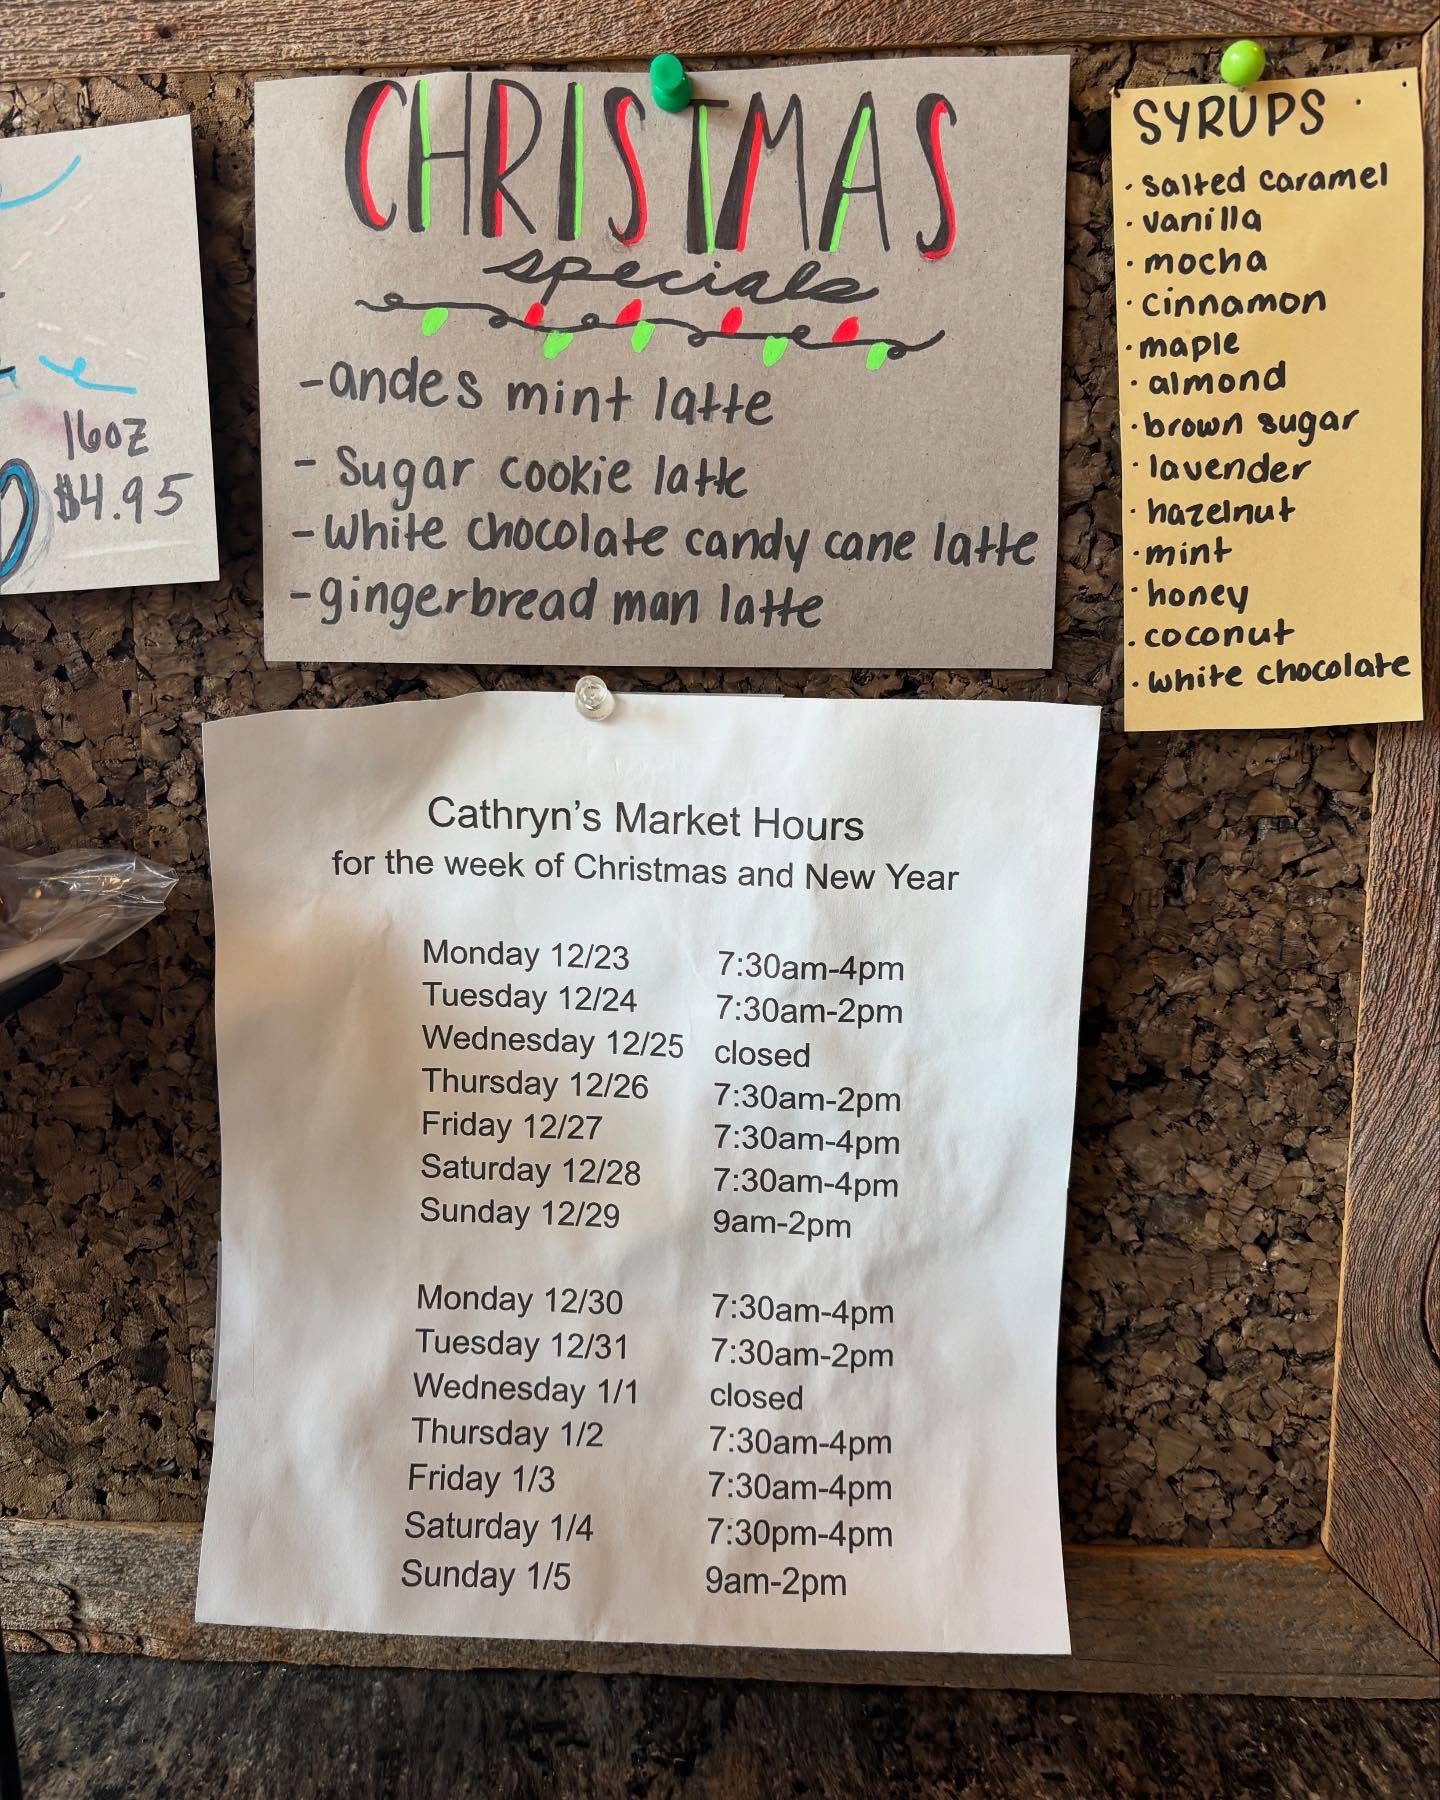 16oz
$4.95
CHRISTMAS
specials
-andes mint latte
- Sugar cookie latte
-white chocolate candy cane latte
-gingerbread man latte
SYRUPS
· salted caramel
· vanilla
· mocha
· cinnamon
· maple
· almond
· brown sugar
· lavender
· hazelnut
· mint
· honey
· coconut
· white chocolate
Cathryn's Market Hours
for the week of Christmas and New Year
Monday 12/23 7:30am-4pm
Tuesday 12/24 7:30am-2pm
Wednesday 12/25 closed
Thursday 12/26 7:30am-2pm
Friday 12/27 7:30am-4pm
Saturday 12/28 7:30am-4pm
Sunday 12/29 9am-2pm
Monday 12/30 7:30am-4pm
Tuesday 12/31 7:30am-2pm
Wednesday 1/1 closed
Thursday 1/2 7:30am-4pm
Friday 1/3 7:30am-4pm
Saturday 1/4 7:30pm-4pm
Sunday 1/5 9am-2pm